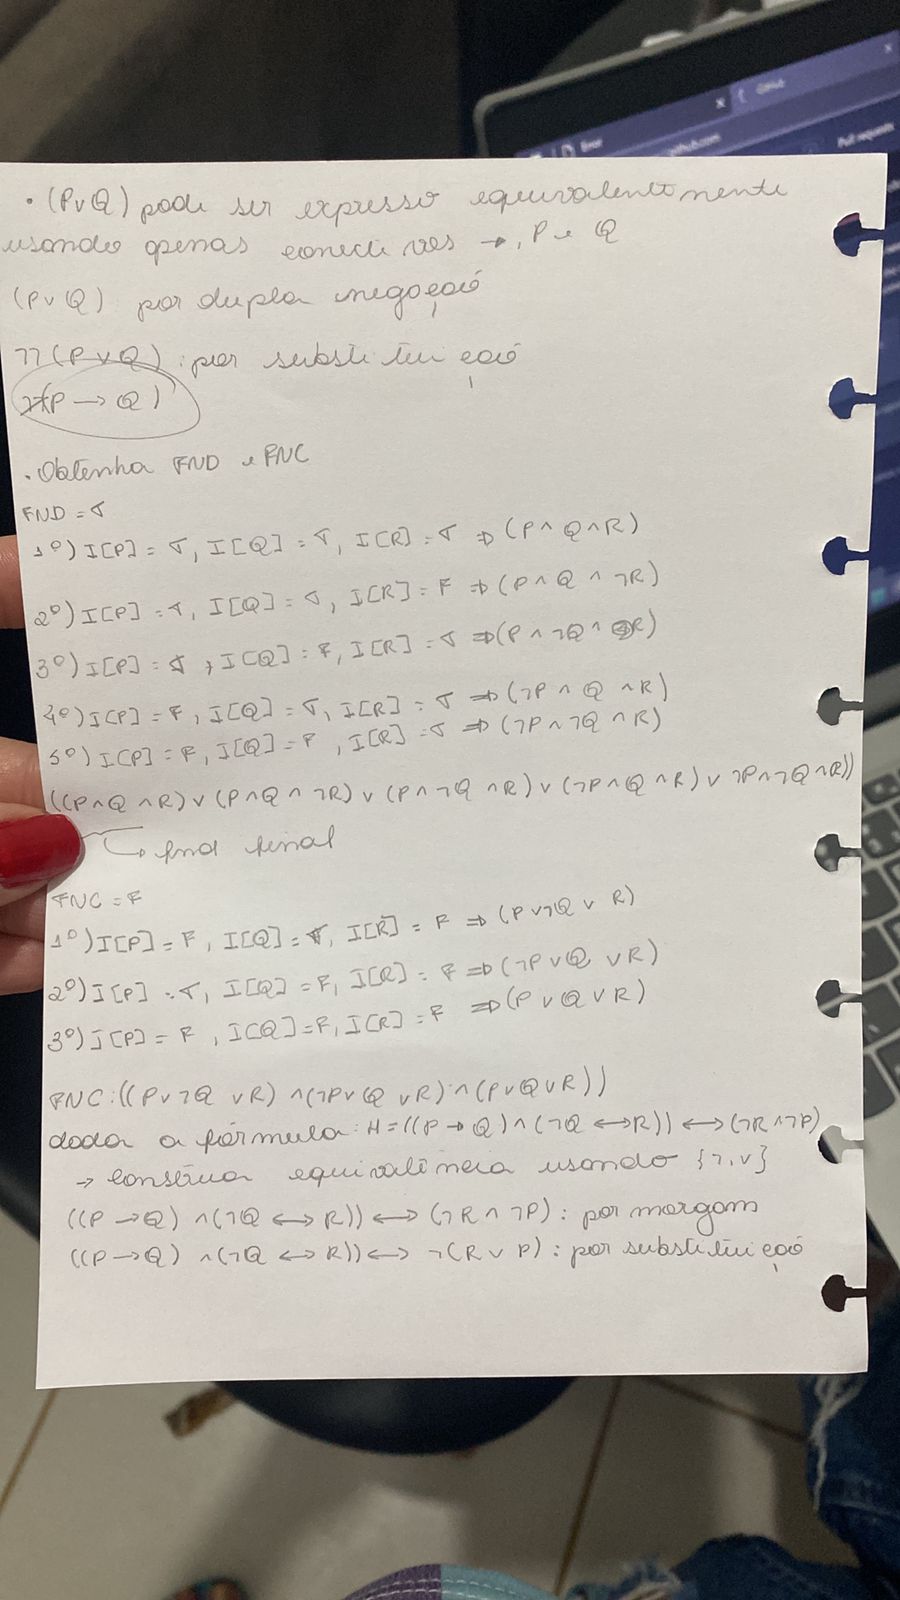 Error
GitHub
github.com
Pull requests
• (P∨Q) pode ser expresso equivalentemente
usando apenas conectives →, P e Q
(P∨Q) por dupla negação
¬¬(P∨Q) : por substituição
(P → Q)
. Obtenha FND e FNC
FND = T
1º) I[P] = T, I[Q] = T, I[R] = T ⇒ (P ∧ Q ∧ R)
2º) I[P] = T, I[Q] = T, I[R] = F ⇒ (P ∧ Q ∧ ¬R)
3º) I[P] = T, I[Q] = F, I[R] = T ⇒ (P ∧ ¬Q ∧ R)
4º) I[P] = F, I[Q] = T, I[R] = T ⇒ (¬P ∧ Q ∧ R)
5º) I[P] = F, I[Q] = F, I[R] = T ⇒ (¬P ∧ ¬Q ∧ R)
((P ∧ Q ∧ R) ∨ (P ∧ Q ∧ ¬R) ∨ (P ∧ ¬Q ∧ R) ∨ (¬P ∧ Q ∧ R) ∨ ¬P ∧ ¬Q ∧ R))
↳ fnd final
FNC = F
1º) I[P] = F, I[Q] = T, I[R] = F ⇒ (P ∨ ¬Q ∨ R)
2º) I[P] = T, I[Q] = F, I[R] = F ⇒ (¬P ∨ Q ∨ R)
3º) I[P] = F, I[Q] = F, I[R] = F ⇒ (P ∨ Q ∨ R)
FNC: ((P ∨ ¬Q ∨ R) ∧ (¬P ∨ Q ∨ R) ∧ (P ∨ Q ∨ R))
dada a fórmula: H = ((P → Q) ∧ (¬Q ↔ R)) ↔ (¬R ∧ ¬P)
→ construa equivalência usando {¬, ∨}
((P → Q) ∧ (¬Q ↔ R)) ↔ (¬R ∧ ¬P) : por morgam
((P → Q) ∧ (¬Q ↔ R)) ↔ ¬(R ∨ P) : por substituição